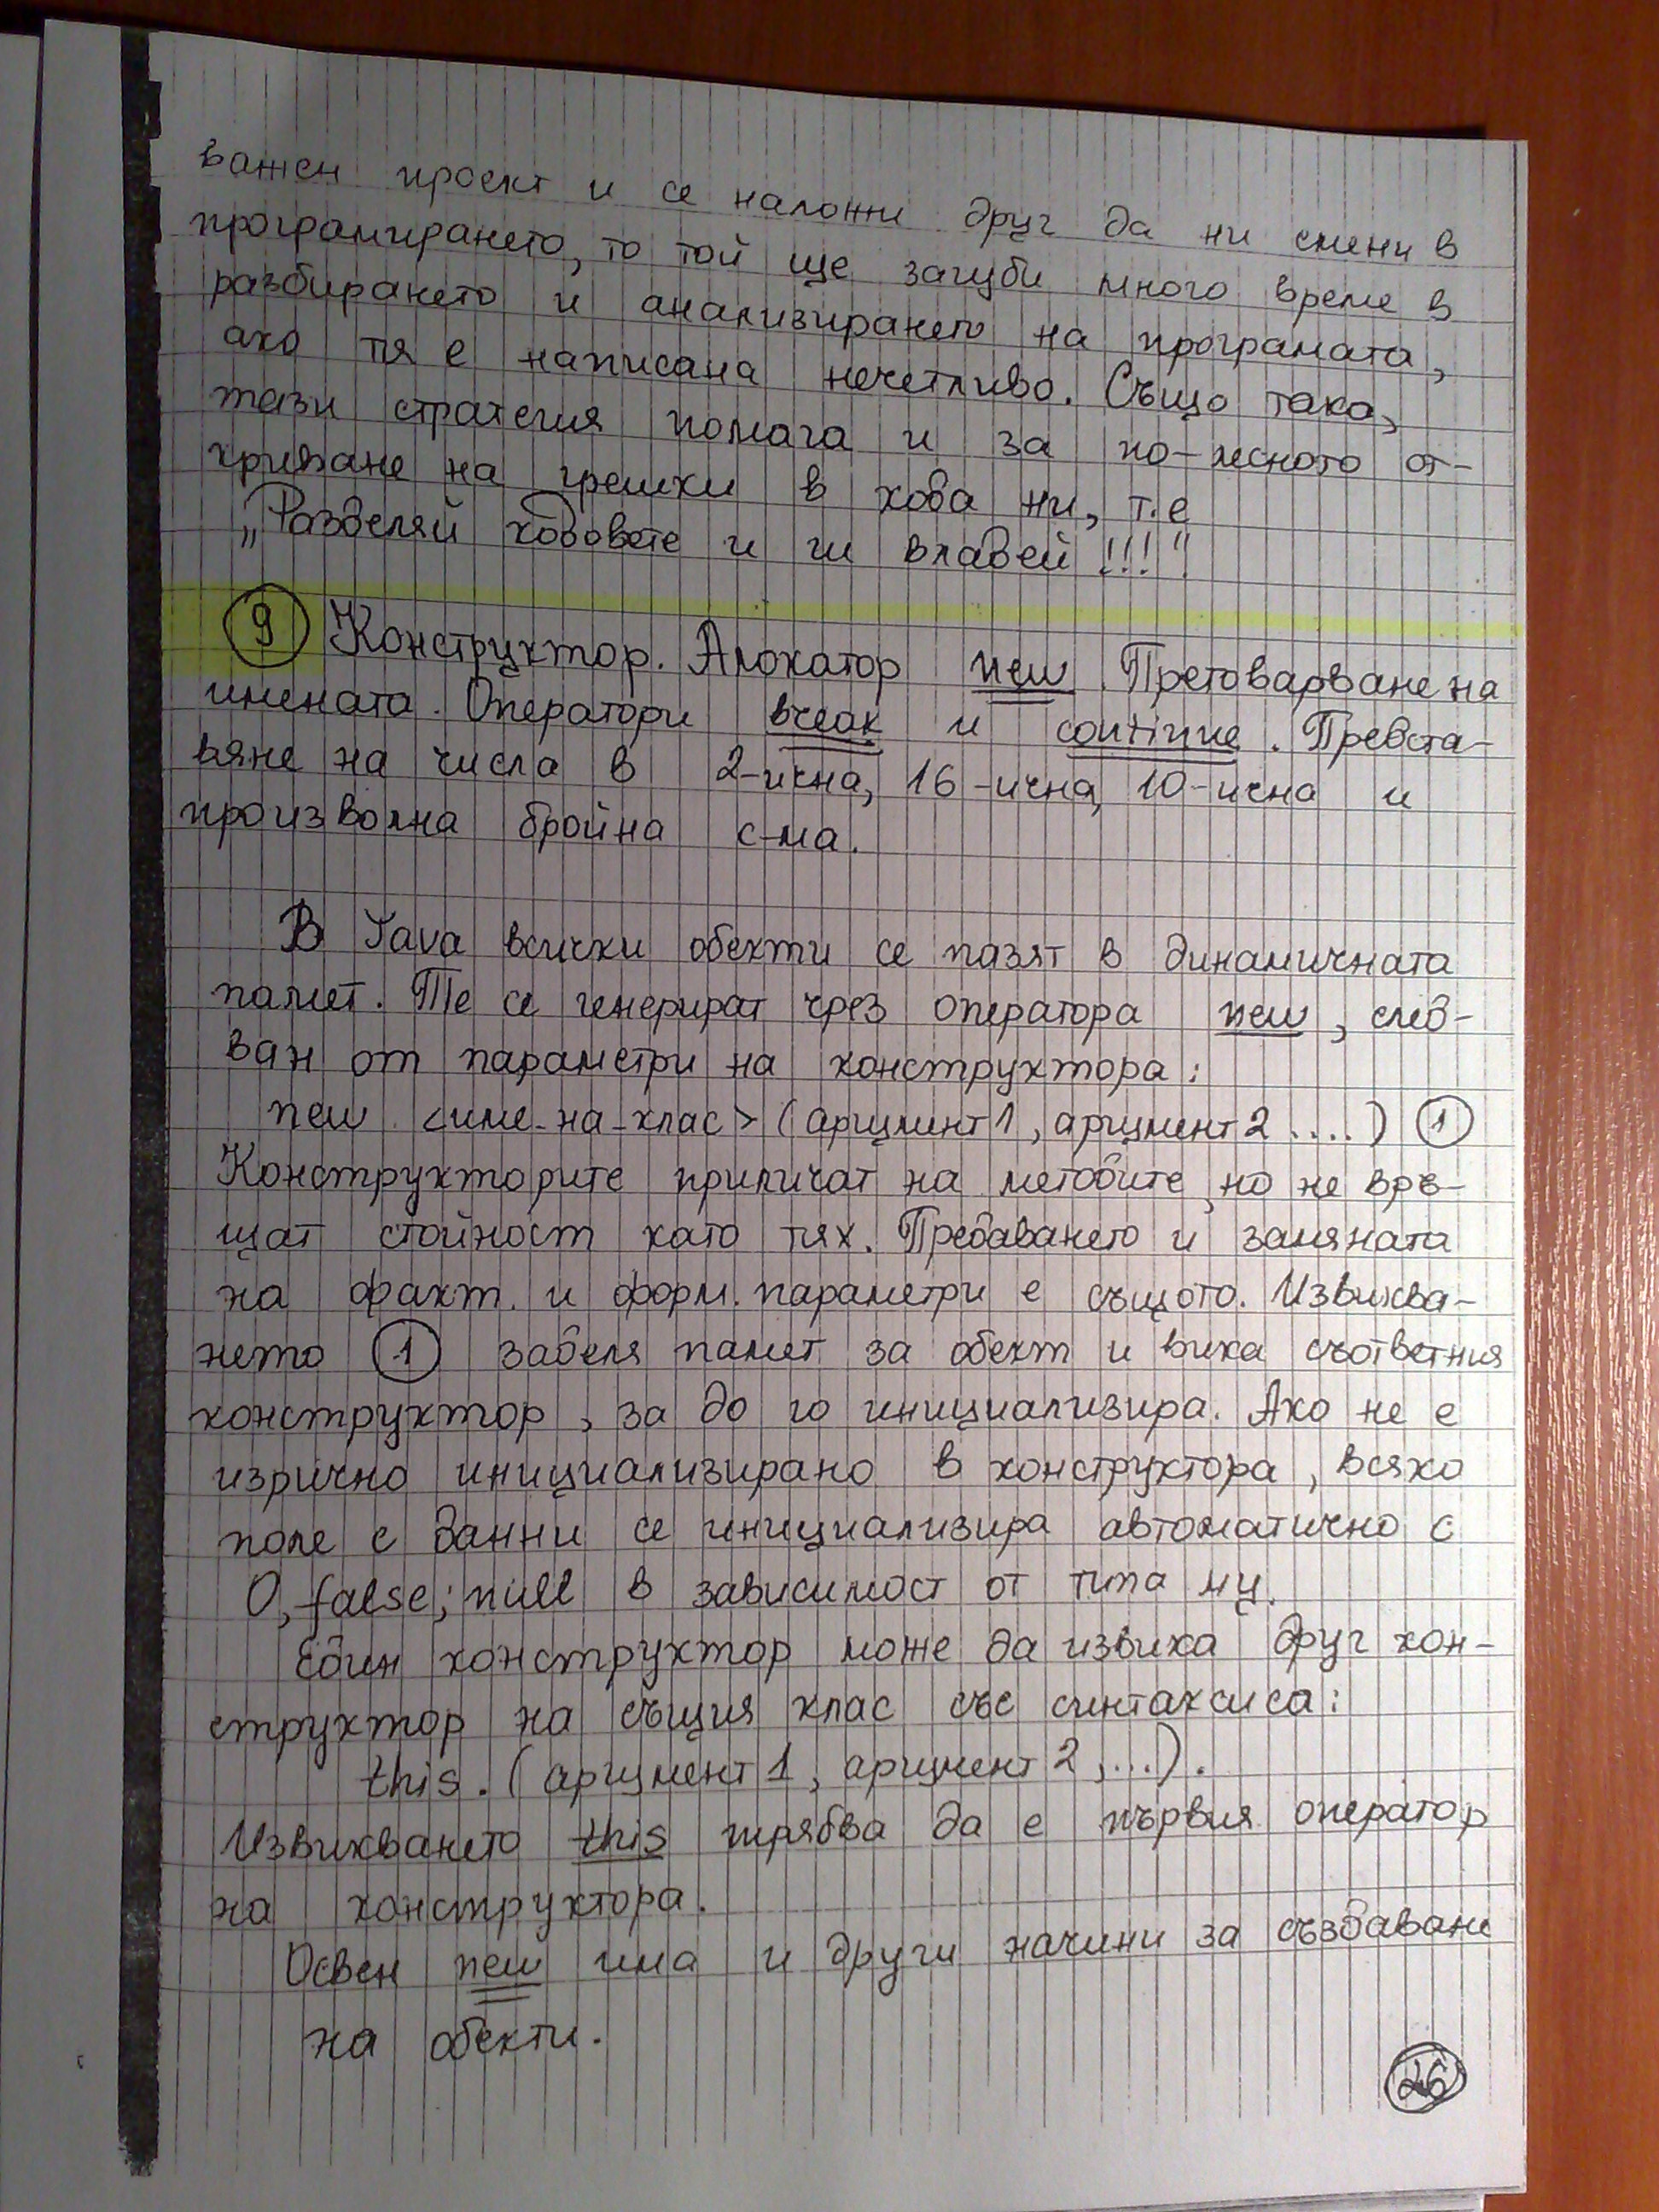 важен проект и се наложи друг да ни смени в
програмирането, то той ще загуби много време в
разбирането и анализирането на програмата,
ако тя е написана нечетливо. Също така,
тази стратегия помага и за по-лесното от-
криване на грешки в кода ни, т.е
„Разделяй кодовете и ги владей!!!"
9 Конструктор. Алокатор new. Претоварване на
имената. Оператори break и continue. Предста-
вяне на числа в 2-ична, 16-ична, 10-ична и
произволна бройна с-ма.
В Java всички обекти се пазят в динамичната
памет. Те се генерират чрез оператора new, след-
ван от параметри на конструктора:
new <име-на-клас> (аргумент1, аргумент2 ....) 1
Конструкторите приличат на методите, но не връ-
щат стойност като тях. Предаването и замяната
на факт. и форм. параметри е същото. Извиква-
нето 1 заделя памет за обект и вика съответния
конструктор, за до го инициализира. Ако не е
изрично инициализирано в конструктора, всяко
поле с данни се инициализира автоматично с
0, false; null в зависимост от типа му.
Един конструктор може да извика друг кон-
структор на същия клас със синтаксиса:
this. (аргумент1, аргумент2,...).
Извикването this трябва да е първия оператор
на конструктора.
Освен new има и други начини за създаване
на обекти.
26